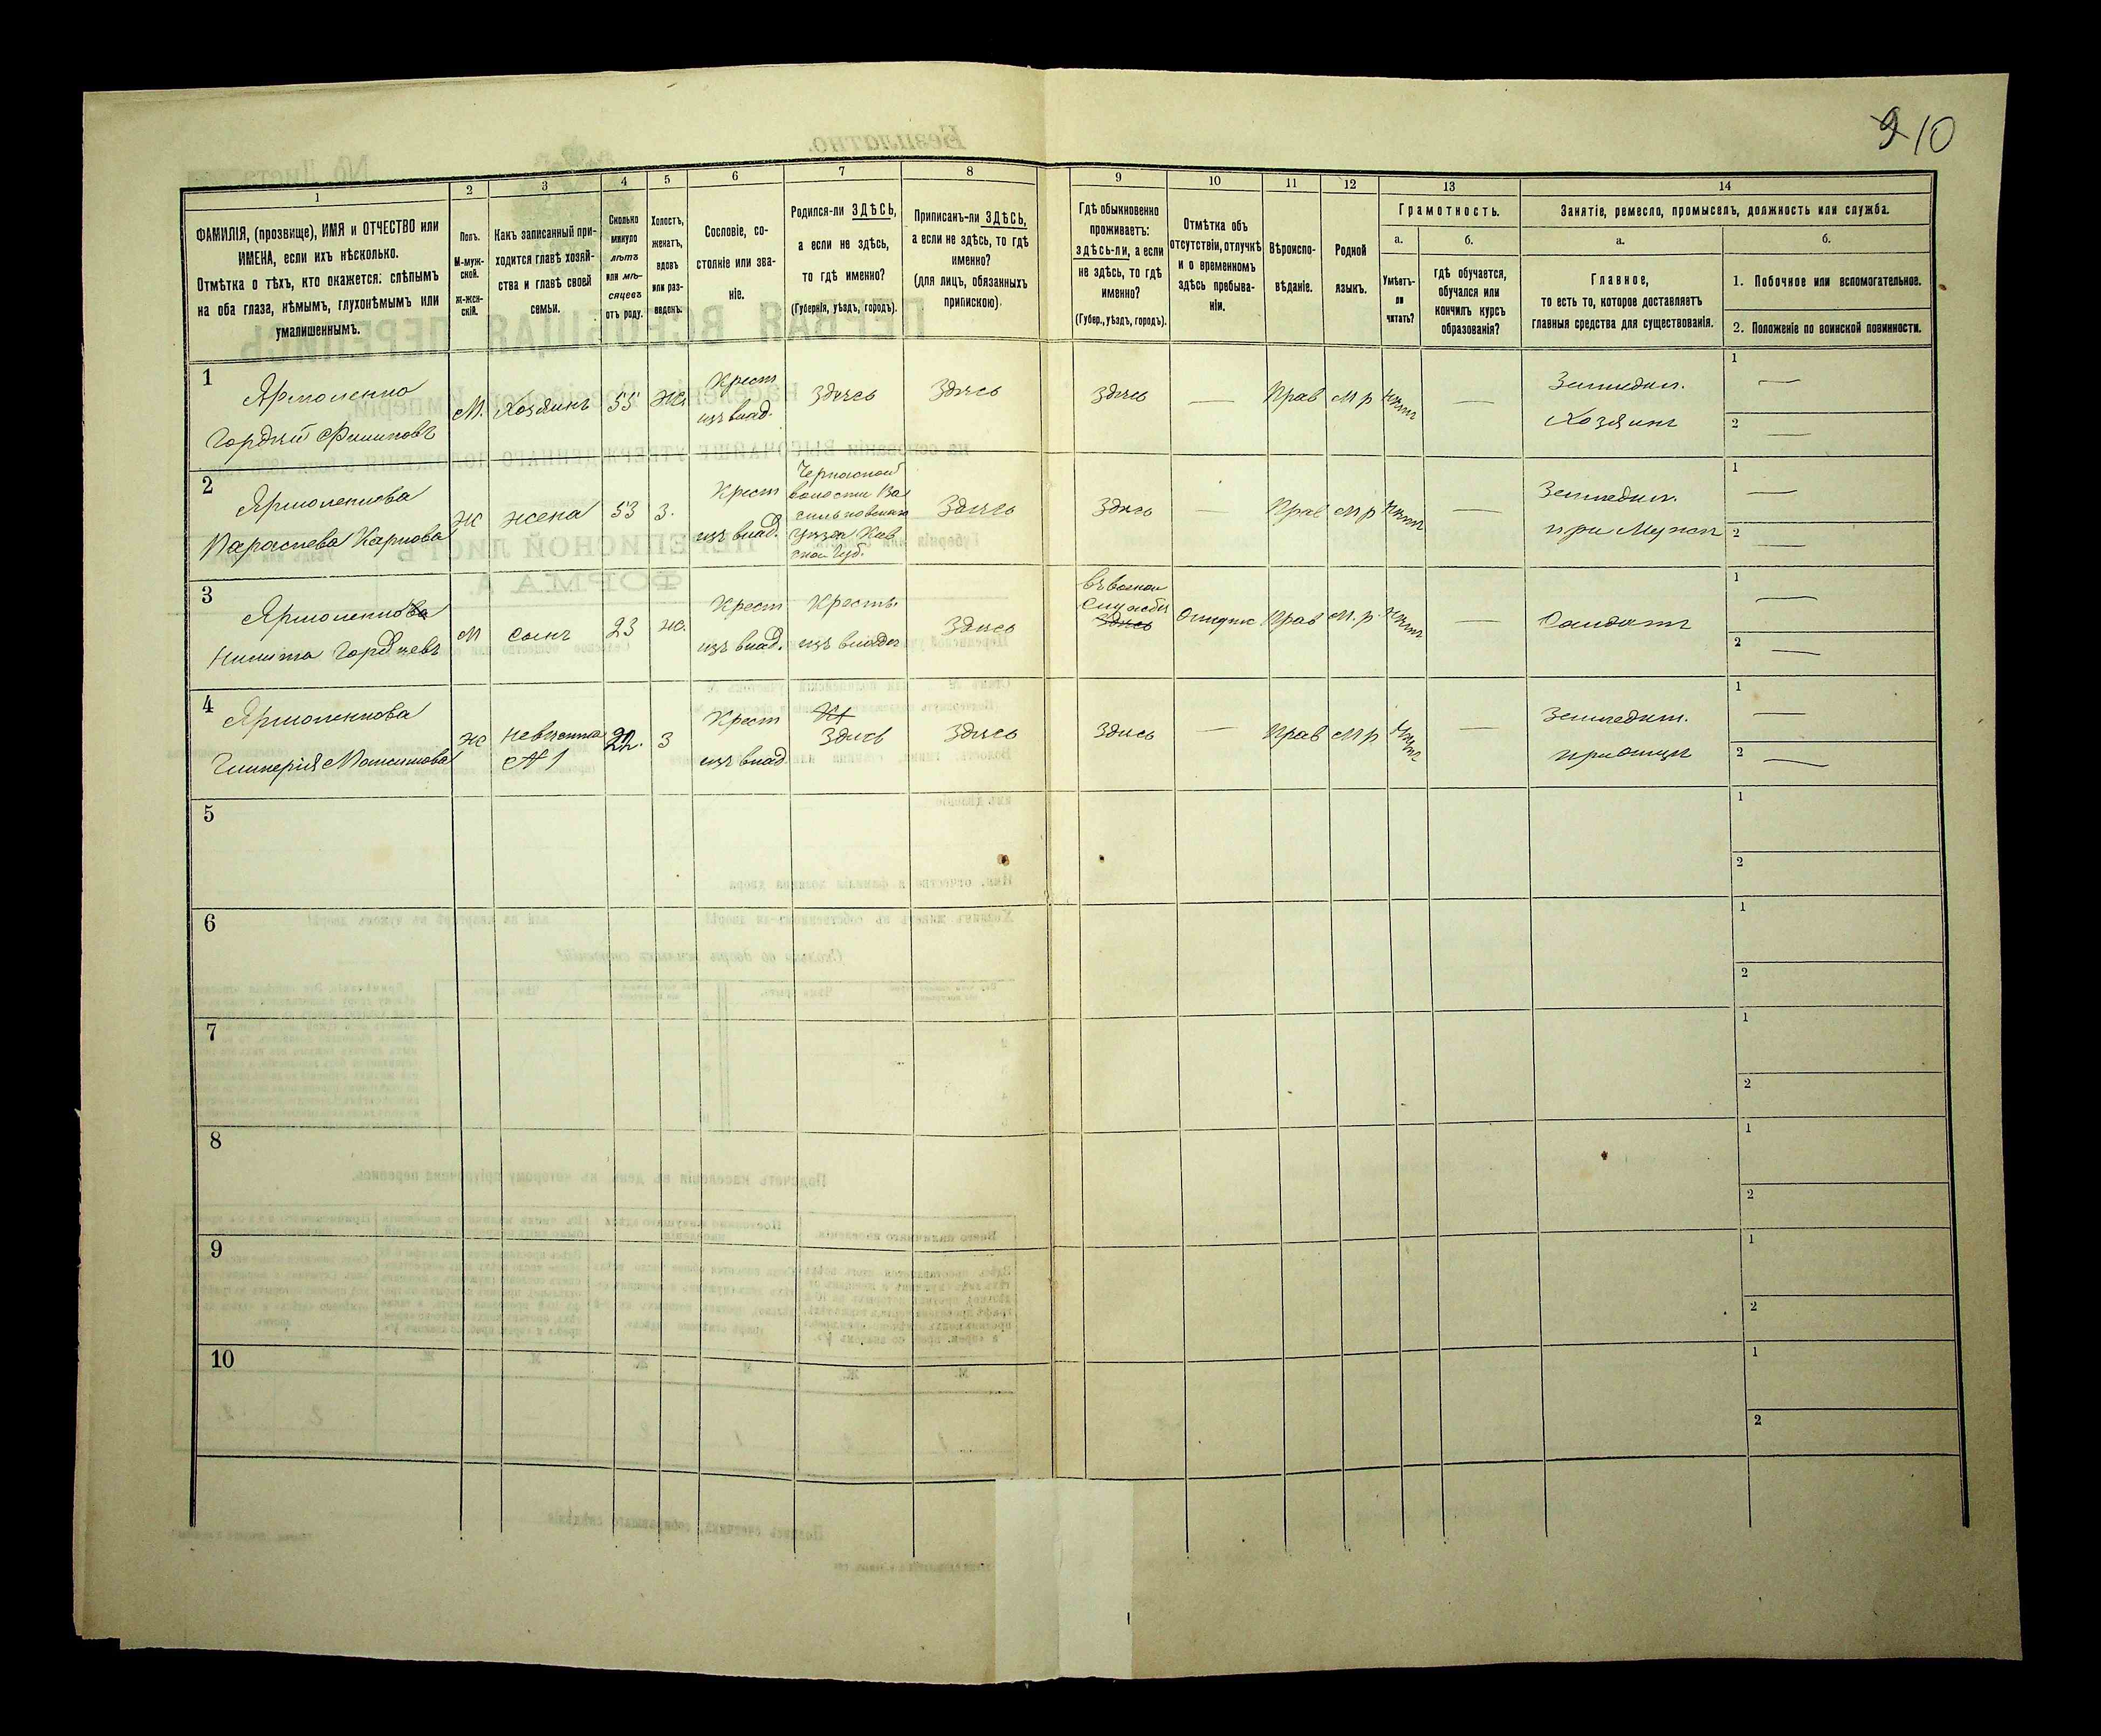 9 10
1
2
3
4
5
6
7
8
9
10
11
12
13
14
ФАМИЛІЯ, (прозвище), ИМЯ и ОТЧЕСТВО или
ИМЕНА, если ихъ нѣсколько.
Отмѣтка о тѣхъ, кто окажется: слѣпымъ
на оба глаза, нѣмымъ, глухонѣмымъ или
умалишеннымъ.
Полъ.
М-муж-
ской.
Ж-жен-
скій.
Какъ записанный при-
ходится главѣ хозяй-
ства и главѣ своей
семьи.
Сколько
минуло
лѣтъ
или мѣ-
сяцевъ
отъ роду.
Холостъ,
женатъ,
вдовъ
или раз-
веденъ.
Сословіе, со-
стояніе или зва-
ніе.
Родился-ли ЗДѢСЬ,
а если не здѣсь,
то гдѣ именно?
(Губернія, уѣздъ, городъ).
Приписанъ-ли ЗДѢСЬ,
а если не здѣсь, то гдѣ
именно?
(для лицъ, обязанныхъ
припискою).
Гдѣ обыкновенно
проживаетъ:
ЗДѢСЬ-ЛИ, а если
не здѣсь, то гдѣ
именно?
(Губер., уѣздъ, городъ).
Отмѣтка объ
отсутствіи, отлучкѣ
и о временномъ
здѣсь пребыва-
ніи.
Вѣроиспо-
вѣданіе.
Родной
языкъ.
Грамотность.
а.
Умѣетъ-
ли
читать?
б.
гдѣ обучается,
обучался или
кончилъ курсъ
образованія?
Занятіе, ремесло, промыселъ, должность или служба.
а.
Главное,
то есть то, которое доставляетъ
главныя средства для существованія.
б.
1. Побочное или вспомогательное.
2. Положеніе по воинской повинности.
1
Ярмоленко
Гордѣй Филиповъ
М.
Хозяинъ
55
Ж.
Крест
изъ влад.
Здѣсь
Здѣсь
Здѣсь
—
Прав
М р
Нѣтъ
—
Земледѣл.
Хозяинъ
1 —
2 —
2
Ярмоленкова
Параскева Карпова
Ж
жена
53
З.
Крест
изъ влад.
волости Ва
сильковскаго
уѣзда Кіев
ской Губ.
Здѣсь
Здѣсь
—
Прав
М р
Нѣтъ
—
Земледѣл.
при Мужѣ
1 —
2 —
3
Ярмоленкова
Никита Гордѣевъ
М
сынъ
23
Ж.
Крест
изъ влад.
Крестъ.
изъ владѣ
Здѣсь
въ воен
службѣ
Здѣсь
Прав
М. р.
Нѣтъ
—
Солдатъ
1 —
2 —
4
Ярмоленкова
Гликерія Максимова
Ж
невѣстка
№ 1
22.
З
Крест
изъ влад
Здѣсь
Здѣсь
Здѣсь
—
Прав
М р
Нѣтъ
—
Земледѣл.
при отцѣ
1 —
2 —
5
1
2
6
1
2
7
1
2
8
1
2
9
1
2
10
1
2